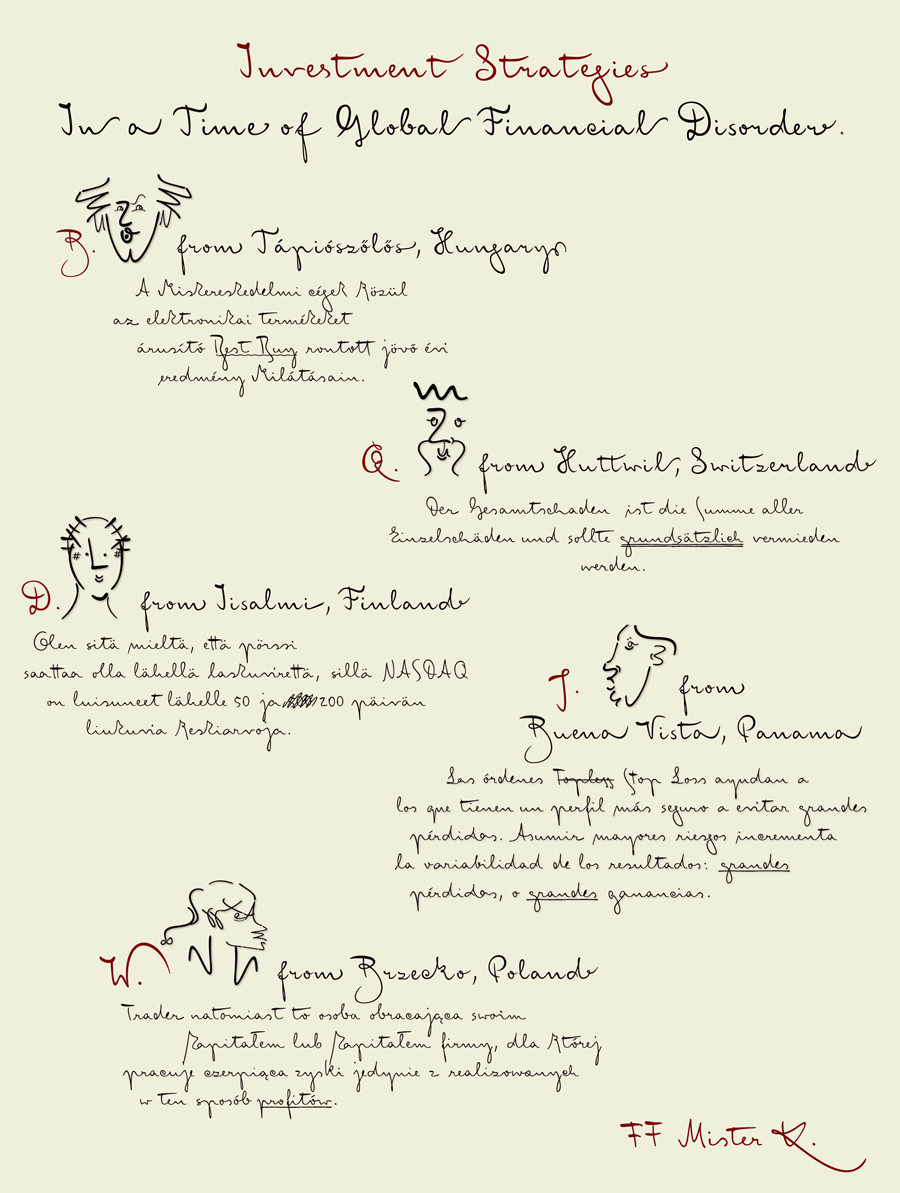 Investment Strategies
In a Time of Global Financial Disorder.
B. from Tápiószőlős, Hungary
A kiskereskedelmi cégek közül
az elektronikai termékeket
árusító Best Buy rontott jövő évi
eredmény kilátásain.
Q. from Huttwil, Switzerland
Der Gesamtschaden ist die Summe aller
Einzelschäden und sollte grundsätzlich vermieden
werden.
D. from Iisalmi, Finland
Olen sitä mieltä, että pörssi
saattaa olla lähellä laskuvirettä, sillä NASDAQ
on luisuneet lähelle 50 ja 200 päivän
liukuvia keskiarvoja.
J. from
Buena Vista, Panama
Las órdenes Topless Stop Loss ayudan a
los que tienen un perfil más seguro a evitar grandes
pérdidas. Asumir mayores riesgos incrementa
la variabilidad de los resultados: grandes
pérdidas, o grandes ganancias.
W. from Brzecko, Poland
Trader natomiast to osoba obracająca swoim
kapitałem lub kapitałem firmy, dla której
pracuje czerpiąca zyski jedynie z realizowanych
w ten sposób profitów.
FF Mister K.